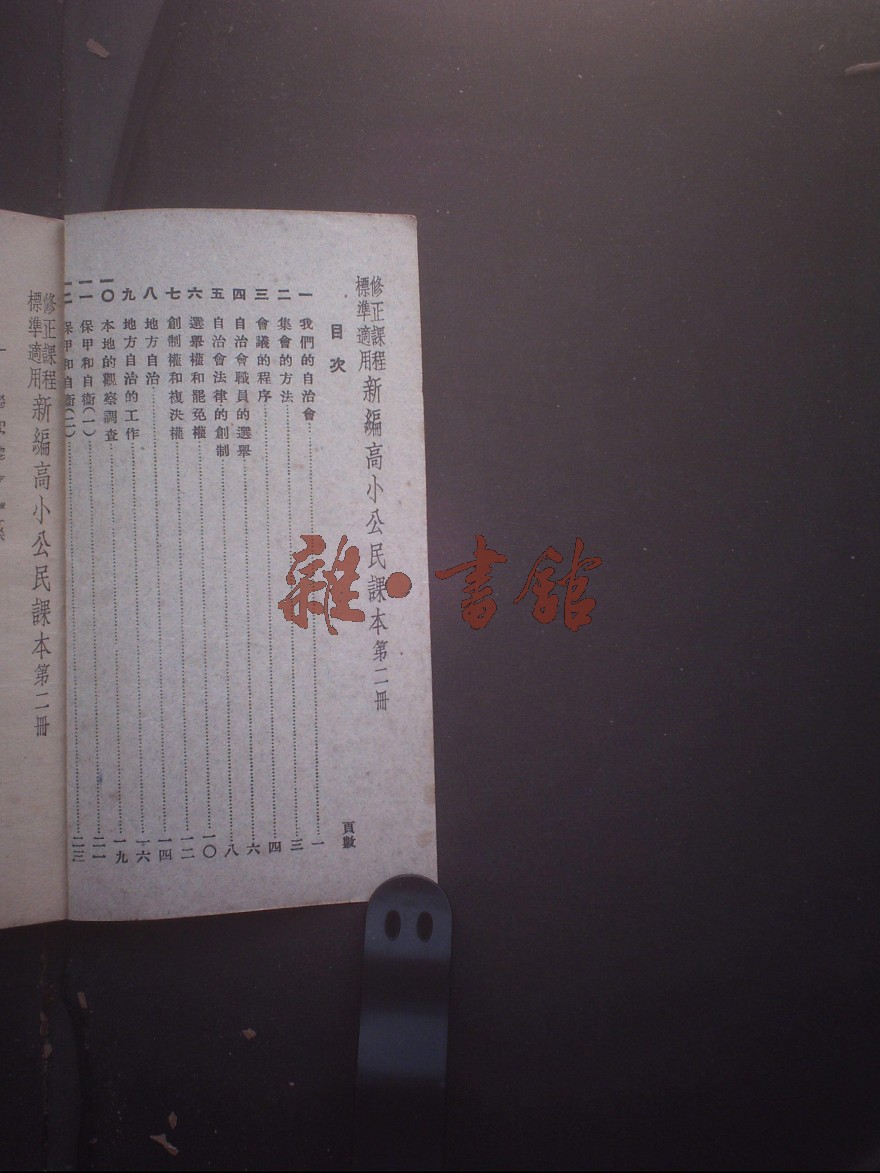 修正課程標準適用 新編高小公民課本第二冊
目次
頁數
一 我們的自治會……一
二 集會的方法……三
三 會議的程序……四
四 自治會職員的選舉……六
五 自治會法律的創制……八
六 選舉權和罷免權……一〇
七 創制權和複決權……一二
八 地方自治……一四
九 地方自治的工作……一六
一〇 本地的觀察調查……一九
一一 保甲和自衞(一)……二一
一二 保甲和自衞(二)……二三
修正課程標準適用 新編高小公民課本第二冊
雜·書館